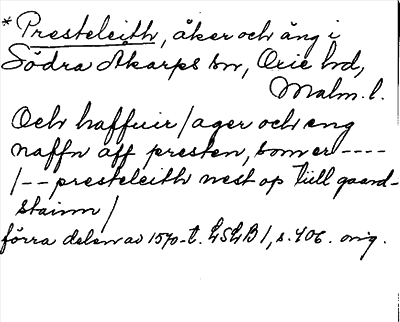 * Presteleith, åker och äng i
Södra Åkarps sn, Oxie hd,
Malm. l.
Och haffuir / ager och eng
naffn aff presten, som er ----
/-- presteleith nest op till gaard-
stainn /
förra delen av 1570-t. LSLB I, s. 406. orig.